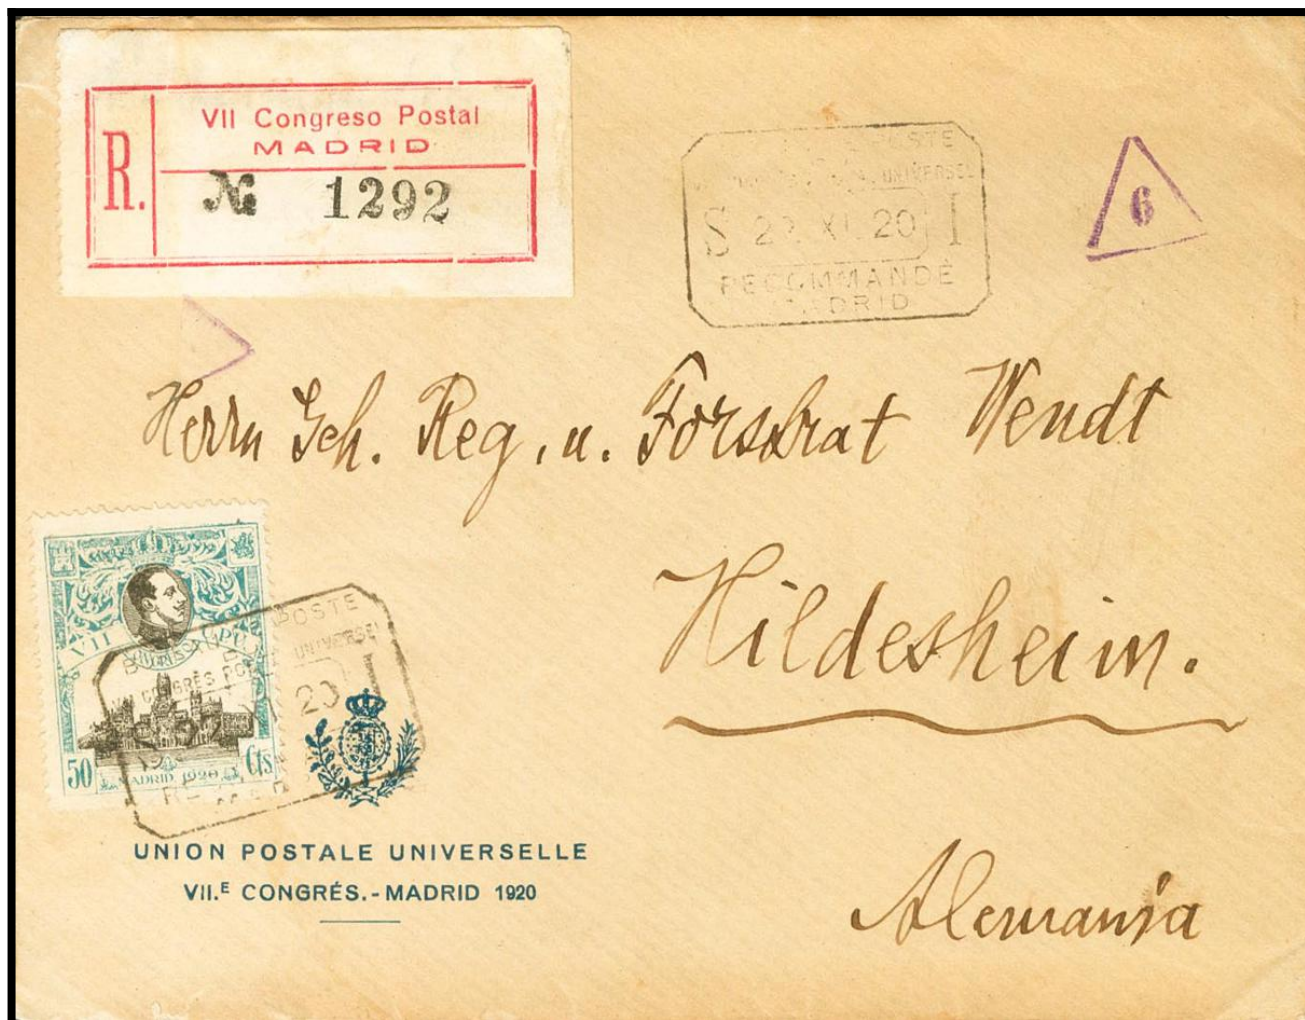 VII Congreso Postal
MADRID
R.
№ 1292
POSTE
UNIVERSEL
S 20 I
RECOMMANDÉ
MADRID
6
Herrn Geh. Reg. u. Forstrat Wendt
Hildesheim.
Alemania
VII CONGRESO UPU
50 Cts
MADRID 1920
POSTE
CONGRÈS UNIVERSEL
20 I
UNION POSTALE UNIVERSELLE
VII.E CONGRÉS.-MADRID 1920